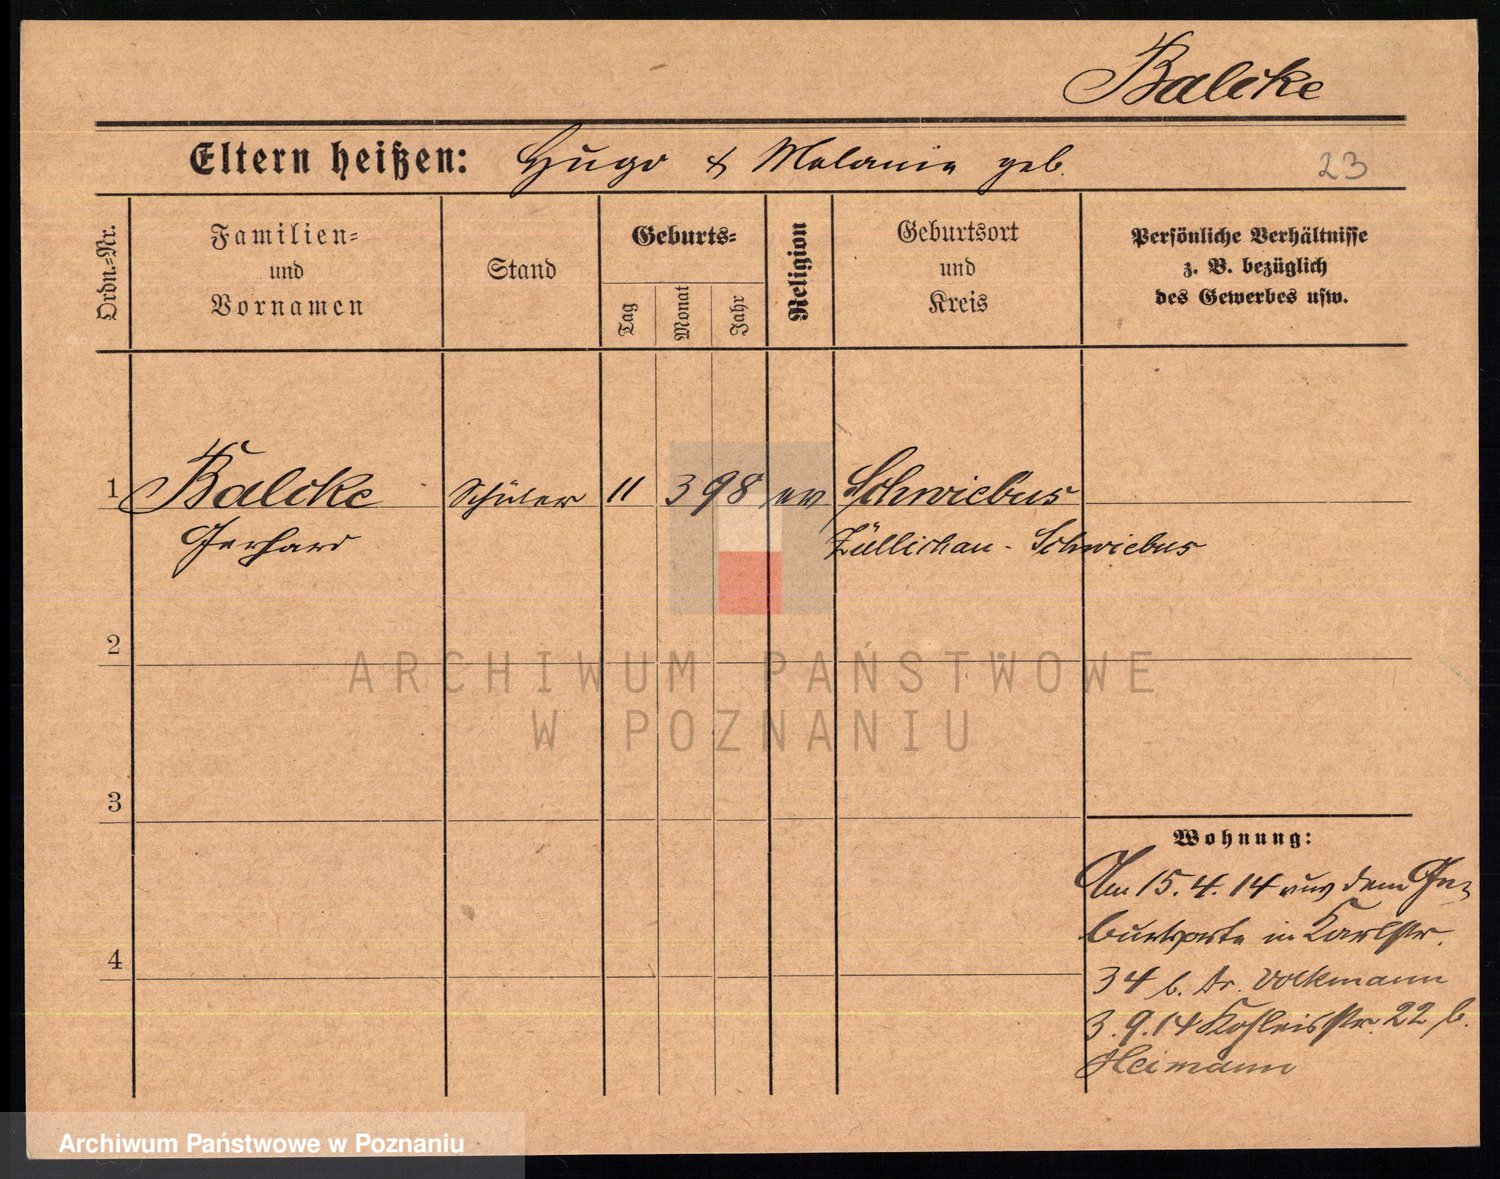 Balcke
Eltern heißen: Hugo & Melanie geb.
23
Ordn.-Nr.
Familien-
und
Vornamen
Stand
Geburts-
Tag
Monat
Jahr
Religion
Geburtsort
und
Kreis
Persönliche Verhältnisse
z. B. bezüglich
des Gewerbes usw.
1 Balcke Schüler 11 3 98 ev Schwiebus
Gerhard Züllichau - Schwiebus
2
3
4
Wohnung:
Am 15.4.14 aus dem Ge-
burtsorte in Karlstr.
34 b. Dr. Volkmann
3.9.14 Kohleisstr. 22 b.
Heimann
ARCHIWUM PAŃSTWOWE
W POZNANIU
Archiwum Państwowe w Poznaniu